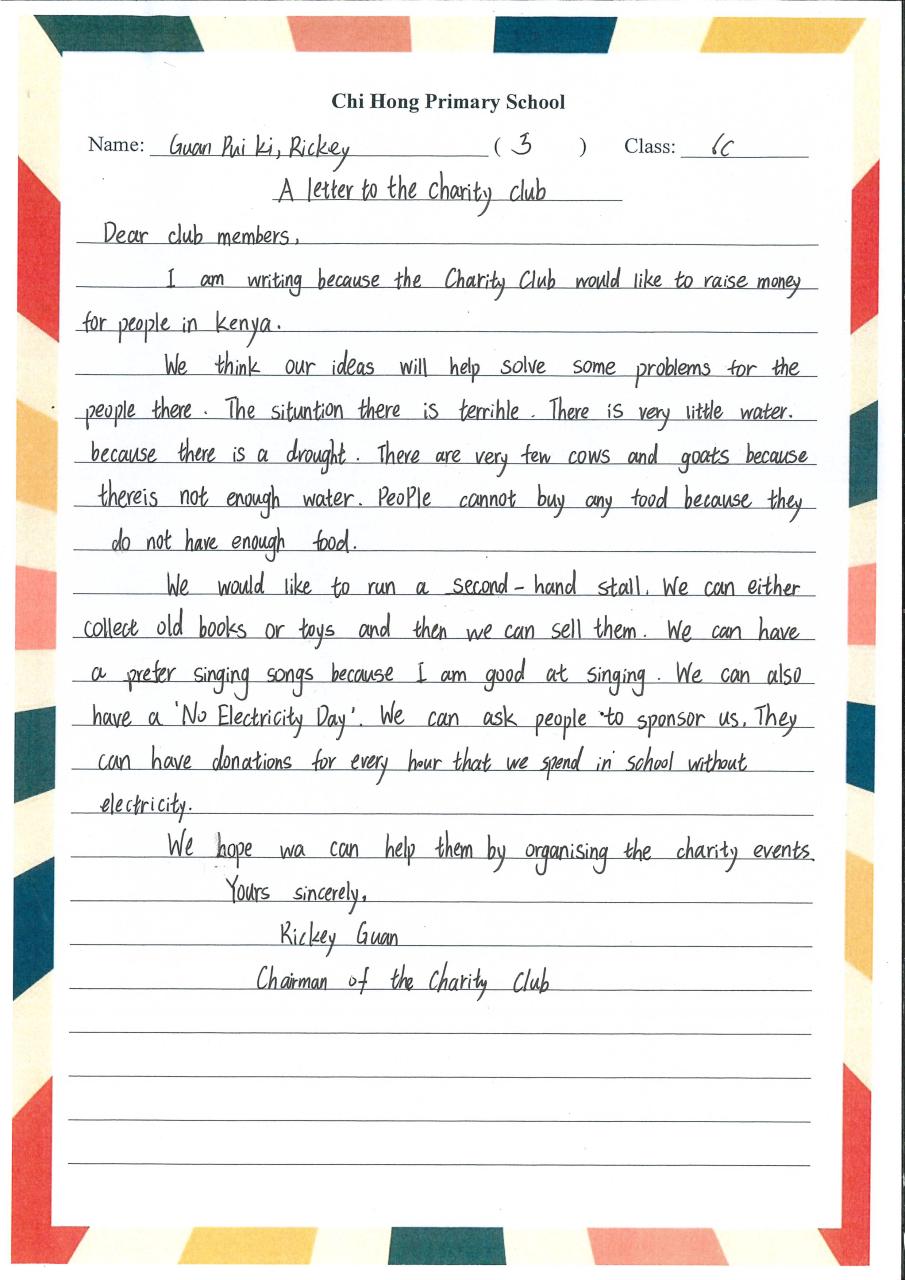 Chi Hong Primary School
Name: Guan Pui Ki, Rickey ( 3 ) Class: 6C
A letter to the charity club
Dear club members,
I am writing because the Charity Club would like to raise money
for people in Kenya.
We think our ideas will help solve some problems for the
people there. The situntion there is terrihle. There is very little water.
because there is a drought. There are very few cows and goats because
thereis not enough water. PeoPle cannot buy any food because they
do not have enough food.
We would like to run a second-hand stall. We can either
collect old books or toys and then we can sell them. We can have
a prefer singing songs because I am good at singing. We can also
have a 'No Electricity Day'. We can ask people to sponsor us. They
can have donations for every hour that we spend in school without
electricity.
We hope wa can help them by organising the charity events.
Yours sincerely,
Rickey Guan
Chairman of the Charity Club